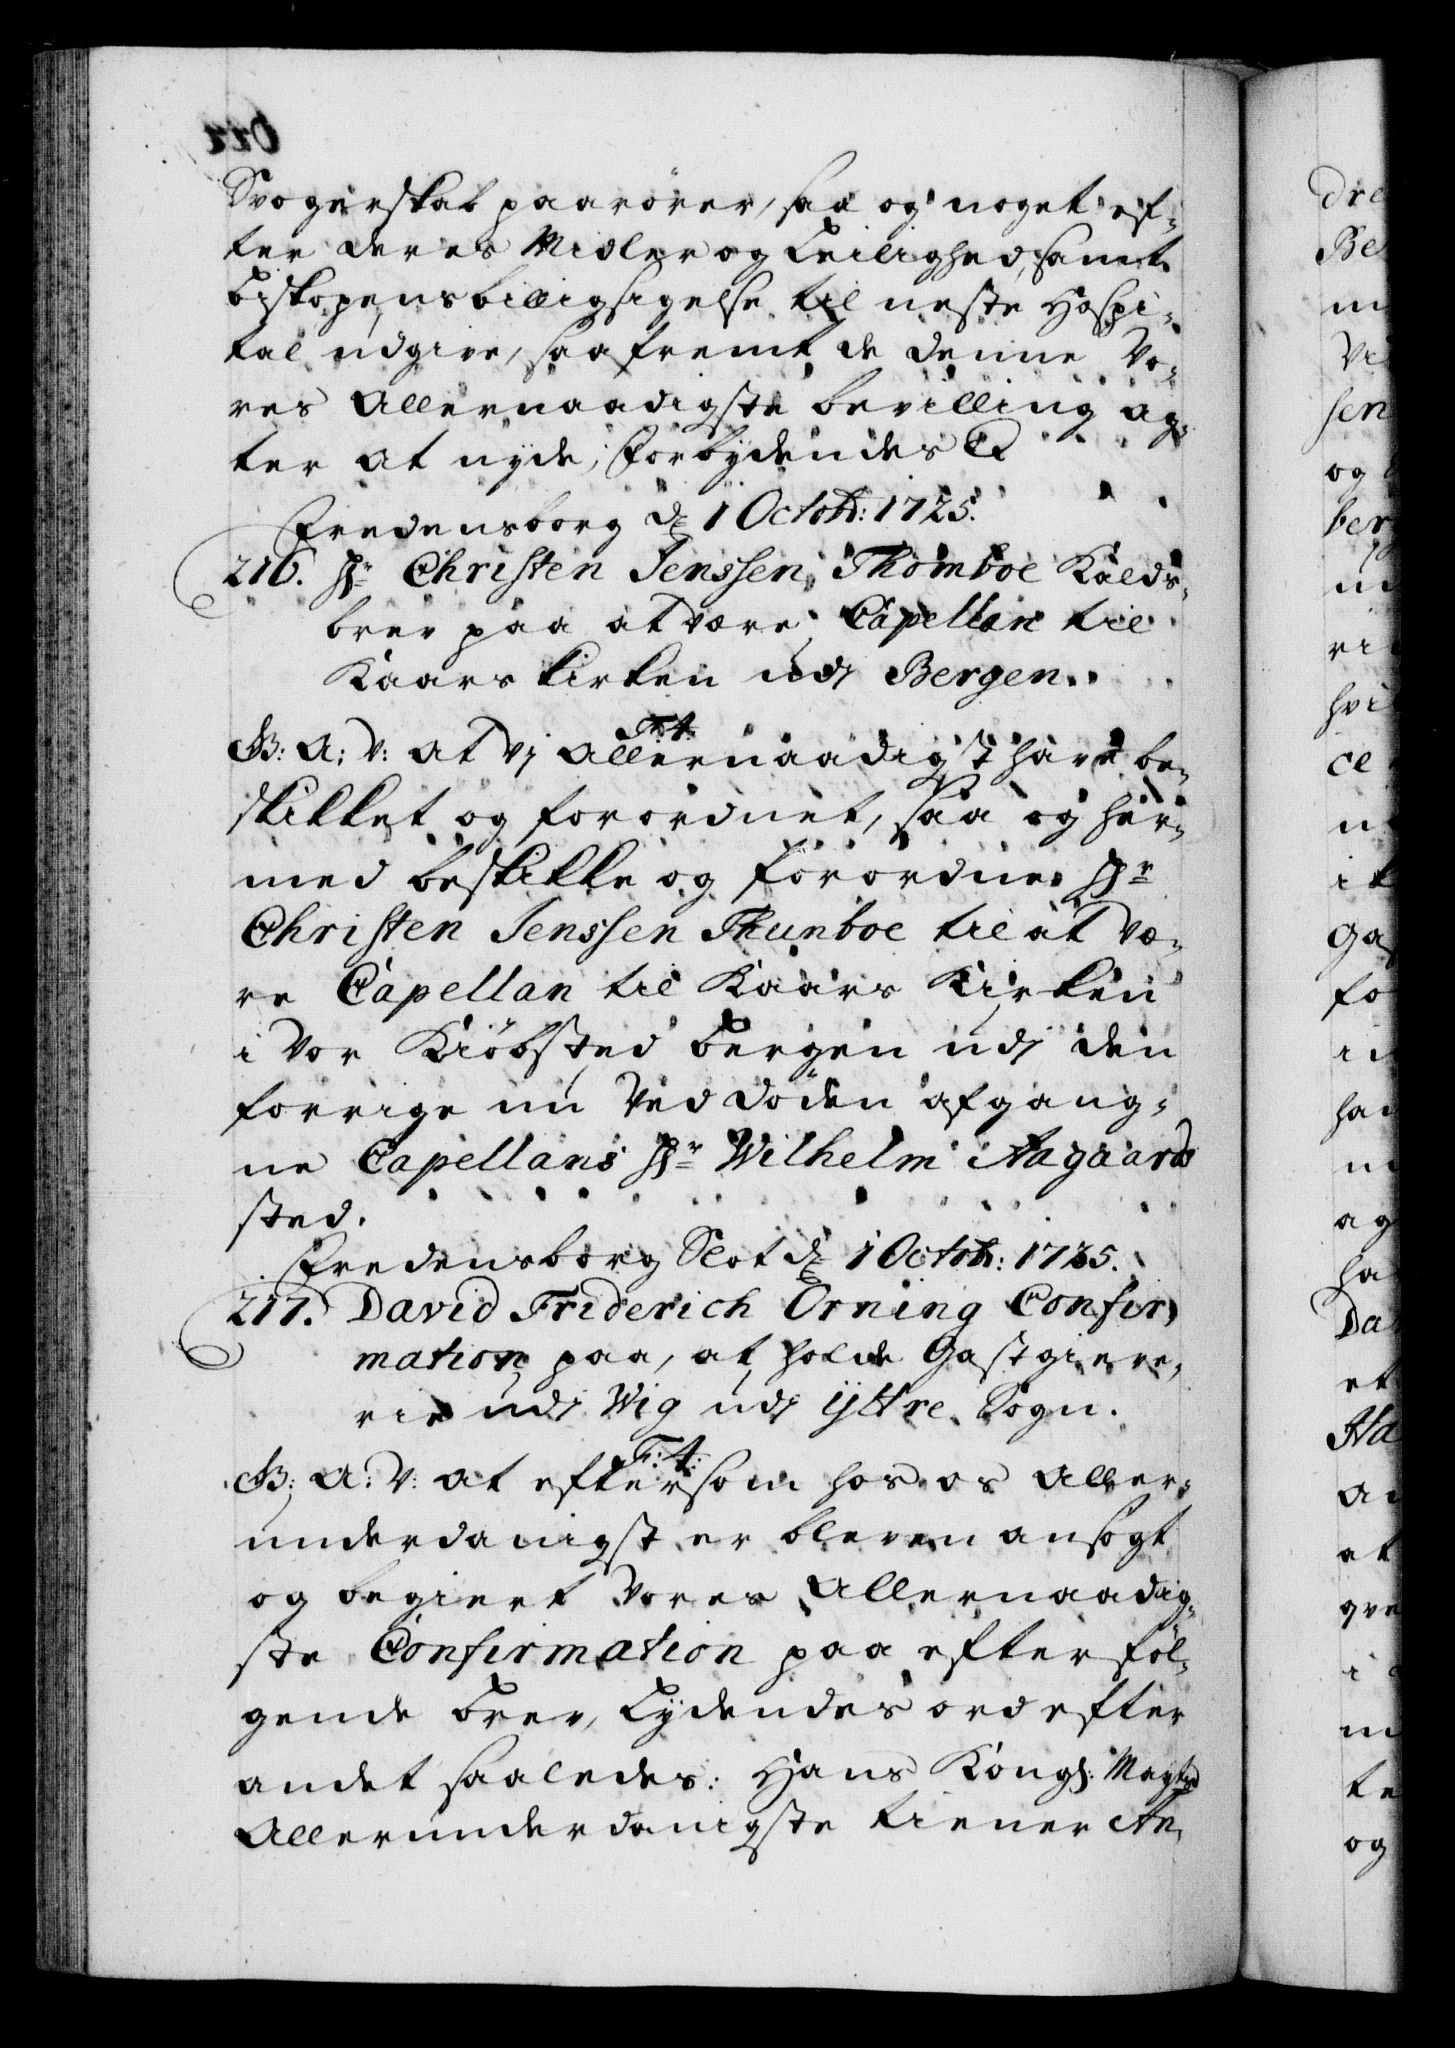 Svogerskab paarører, saa og noget ef-
ter deres Midler og Leilighed, samt
Biskopens billigsigelse til neste Hospi-
tal udgive, saafremt de denne Vo-
res Allernaadigste bevilling ag-
ter at nyde; Forbydendes &
Fredensborg d. 1 Octobr: 1725.
216. Hr Christen Jenssen Thomboe Kalds-
brev paa at være Capellan til
Kaars kirken udj Bergen.
F: 4.
G: A: V: at Vj Allernaadigst have be-
skikket og forordnet, saa og her-
med beskikke og forordne Hr
Christen Jenssen Thunboe til at væ-
re Capellan til Kaars Kirken
i Vor Kiöbsted Bergen udj den
forrige nu Ved döden afgang-
ne Capellans Hr Wilhelm Aagaards
sted.
Fredensborg Slot d. 1 Octobr: 1725.
217. David Friderich Örning Confir-
mation paa, at holde Gastgieve-
rie udj Wig udj ÿttre Sogn.
F: 4:
G: A: V: at eftersom hos os Aller-
underdanigst er bleven ansøgt
og begiert Vores Allernaadig-
ste Confirmation paa efterföl-
gende brev, Lydendes ord efter
andet saaledes: Hans Kongl: Mayts
Allerunderdanigste tiener An-